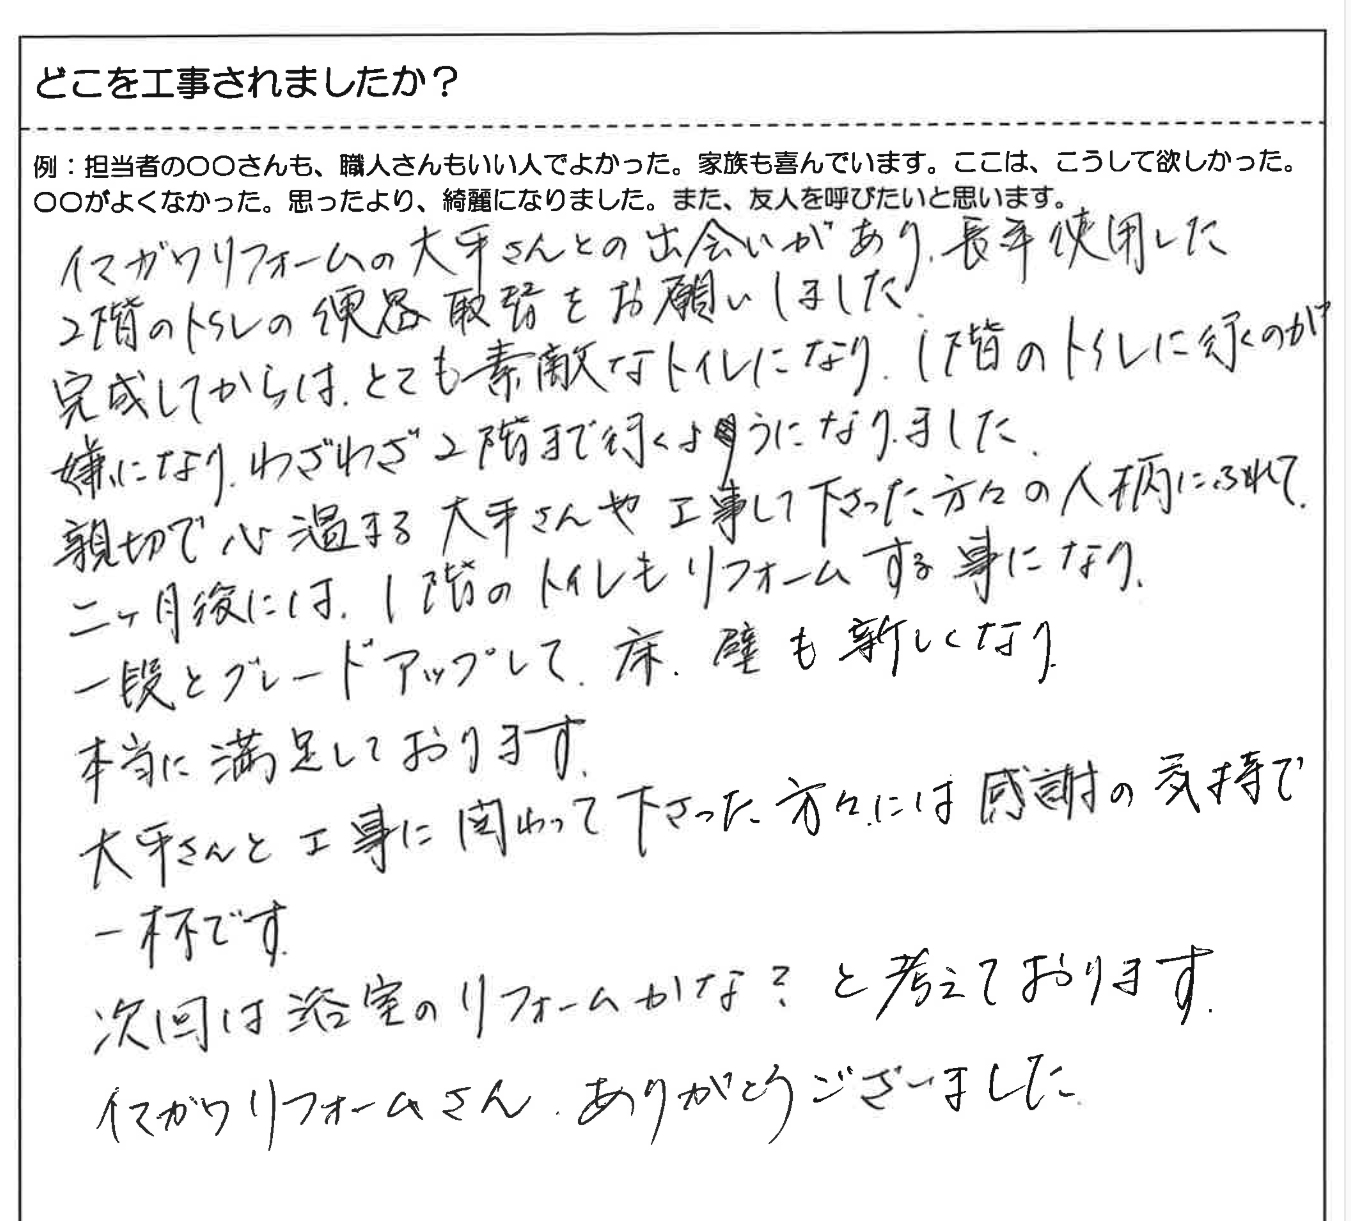 どこを工事されましたか？
例：担当者の〇〇さんも、職人さんもいい人でよかった。家族も喜んでいます。ここは、こうして欲しかった。
〇〇がよくなかった。思ったより、綺麗になりました。また、友人を呼びたいと思います。
イマガワリフォームの大平さんとの出会いがあり、長年使用した
2階のトイレの便器取替をお願いしました。
完成してからは、とても素敵なトイレになり、1階のトイレに行くのが
嫌になり、わざわざ2階まで行くようになりました。
親切で心温まる大平さんや工事して下さった方々の人柄にふれて、
二ヶ月後には、1階のトイレもリフォームする事になり、
一段とグレードアップして、床、壁も新しくなり、
本当に満足しております。
大平さんと工事に関わって下さった方々には感謝の気持で
一杯です。
次回は浴室のリフォームかな？と考えております。
イマガワリフォームさん、ありがとうございました。